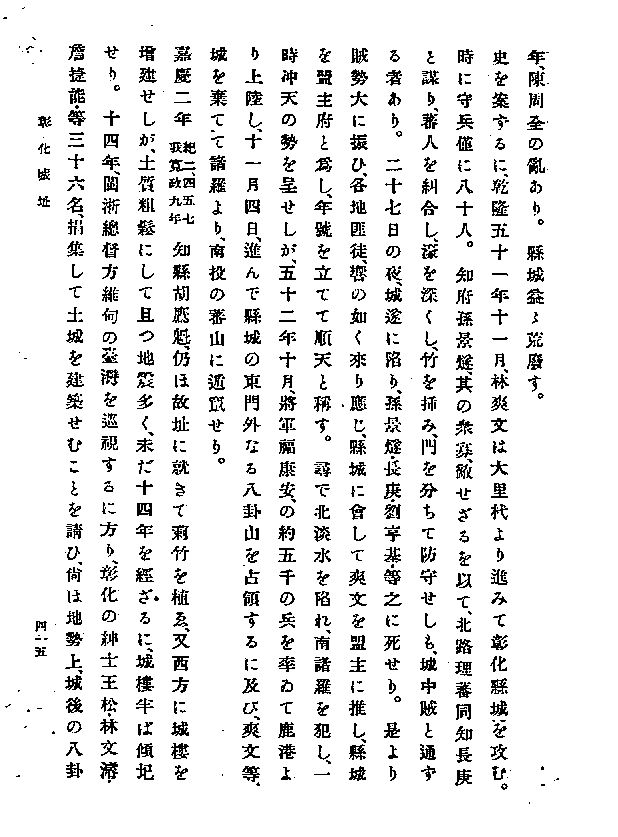 年、陳周全の亂あり。縣城益〻荒廢す。
史を案ずるに、乾隆五十一年十一月、林爽文は大里杙より進みて彰化縣城を攻む。
時に守兵僅に八十人。知府孫景燧、其の衆寡、敵せざるを以て、北路理蕃同知長庚
と謀り、蕃人を糾合し、濠を深くし、竹を挿み、門を分ちて防守せしも、城中賊と通ず
る者あり。二十七日の夜、城遂に陷り、孫景燧・長庚・劉亨基・等之に死せり。是より
賊勢大に振ひ、各地匪徒、響の如く來り應じ、縣城に會して爽文を盟主に推し、縣城
を盟主府と爲し、年號を立てて順天と稱す。尋で北淡水を陷れ、南諸羅を犯し、一
時沖天の勢を呈せしが、五十二年十月、將軍福康安の約五千の兵を率ゐて鹿港よ
り上陸し、十一月四日、進んで縣城の東門外なる八卦山を占領するに及び、爽文等、
城を棄てて諸羅より、南投の蕃山に遁竄せり。
嘉慶二年 紀二、四五七 我寬政九年 知縣胡應魁、仍ほ故址に就きて莿竹を植ゑ、又西方に城樓を
增建せしが、土質粗鬆にして且つ地震多く、未だ十四年を經ざるに、城樓半ば傾圮
せり。十四年、閩浙總督方維甸の臺灣を巡視するに方り、彰化の紳士王松・林文濬・
詹捷能・等三十六名、捐集して土城を建築せむことを請ひ、尙ほ地勢上、城後の八卦
彰化城址
四二五